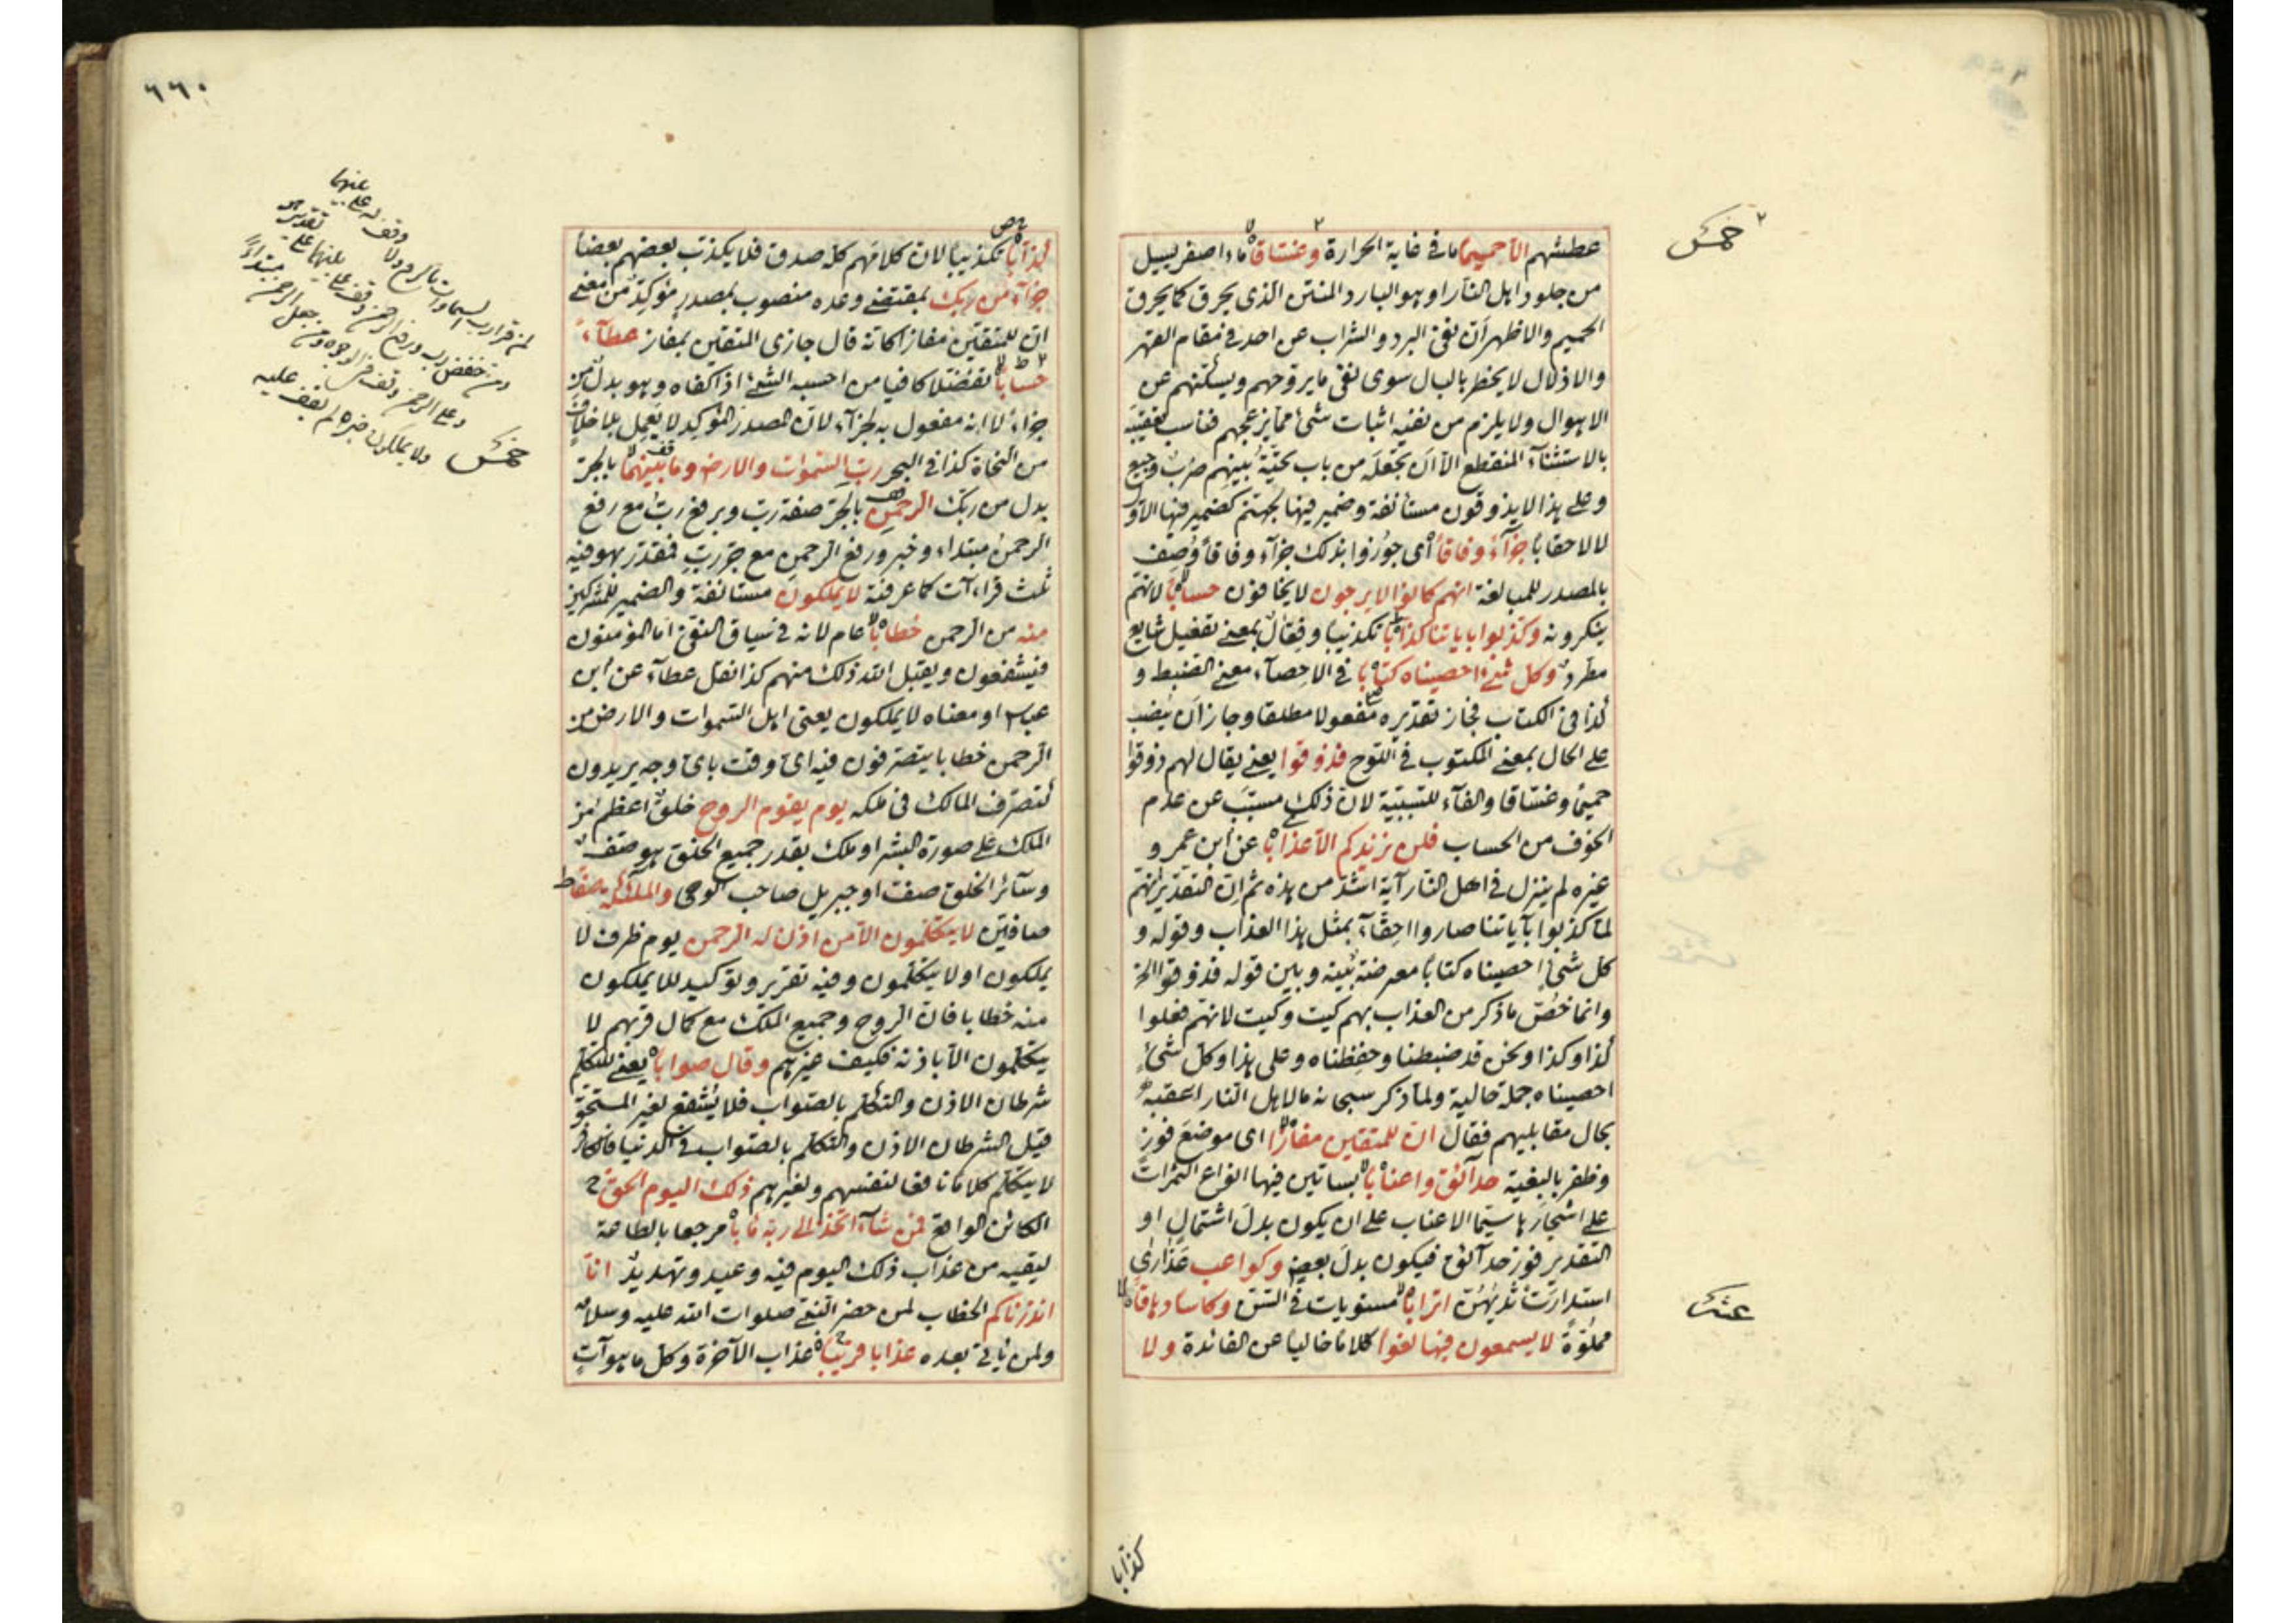 خمس
عطشهم الا حميما ما في غاية الحرارة وغساقا ماء اصفر يسيل
من جلود اهل النار او هو البارد المنتن الذي يحرق كما يحرق
الحميم والاظهر ان نفى البرد والشراب عن احد في مقام القهر
والاذلال لا يخطر بالبال سوى نفى ما يروحهم ويسكنهم عن
الاهوال ولا يلزم من نفيه اثبات شئ مما يزعجهم فناسب تعقيبه
بالاستثناء المنقطع الا ان نجعله من باب تحية بينهم ضرب وجيع
وعلى هذا لا يذوقون مستأنفة وضمير فيها لجهنم كضمير فيها الاول
لا لاحقابا جزآء وفاقا اى جوزوا بذلك جزآء وفاقا وصف
بالمصدر للمبالغة انهم كانوا لا يرجون لا يخافون حسابا لانهم
ينكرونه وكذبوا باياتنا كذابا تكذيبا وفعال بمعنى تفعيل شايع
مطرد وكل شئ احصيناه كتابا في الاحصاء معنى الضبط و
كذا في الكتاب فجاز تقديره مفعولا مطلقا وجاز ان ينصب
على الحال بمعنى المكتوب في اللوح فذوقوا يعنى يقال لهم ذوقوا
حميما وغساقا والفآء للسببية لان ذلك مسبب عن عدم
الخوف من الحساب فلن نزيدكم الا عذابا عن ابن عمر و
غيره لم ينزل في اهل النار آية اشد من هذه ثم ان التقدير انهم
لما كذبوا بآياتنا صاروا احقآء بمثل هذا العذاب وقوله و
كل شئ احصيناه كتابا معرضة بينه وبين قوله فذوقوا الخ
وانما خص ما ذكر من العذاب بهم كيت وكيت لانهم فعلوا
كذا وكذا ونحن قد ضبطنا وحفظناه وعلى هذا وكل شئ
احصيناه جملة حالية ولما ذكر سبحانه ما لاهل النار اعقبه
بحال مقابليهم فقال ان للمتقين مفازا اى موضع فوز
وظفر بالبغية حدآئق واعنابا بساتين فيها انواع الثمرات
على اشجارها سيما الاعناب على ان يكون بدل اشتمال او
التقدير فوز حدآئق فيكون بدل بعض وكواعب عذارى
استدارت ثديهن اترابا مستويات في السن وكاسا دهاقا
مملوة لا يسمعون فيها لغوا كلاما خاليا عن الفائدة ولا
عشر
كذابا
٦٦٠
كذابا تكذيبا لان كلامهم كله صدق فلا يكذب بعضهم بعضا
جزآء من ربك بمقتضى وعده منصوب بمصدر مؤكد من معنى
ان للمتقين مفازا كانه قال جازى المتقين بمفاز عطآء
حسابا تفضلا كافيا من احسبه الشئ اذا كفاه وهو بدل من
جزاء لا انه مفعول به لجزآء لان المصدر المؤكد لا يعمل بلا خلاف
من النحاة كذا في البحر رب السموات والارض وما بينهما بالجر
بدل من ربك الرحمن بالجر صفة رب وبرفع رب مع رفع
الرحمن مبتداء وخبر ورفع الرحمن مع جر رب فمقدر بهو فيه
ثلث قراءآت كما عرفته لا يملكون مستأنفة والضمير للمشركين
منه من الرحمن خطابا عام لانه في سياق النفى اما المؤمنون
فيشفعون ويقبل الله ذلك منهم كذا نقل عطآء عن ابن
عباس او معناه لا يملكون يعنى اهل السموات والارض من
الرحمن خطابا يتصرفون فيه اى وقت باى وجه يريدون
كتصرف المالك في ملكه يوم يقوم الروح خلق اعظم من
الملك على صورة البشر او ملك بقدر جميع الخلق هو صف
وسآئر الخلق صف او جبريل صاحب الوحى والملئكة صفا
صافين لا يتكلمون الا من اذن له الرحمن يوم ظرف لا
يملكون او لا يتكلمون وفيه تقرير وتوكيد للا يملكون
منه خطابا فان الروح وجميع الملك مع كمال قربهم لا
يتكلمون الا باذنه فكيف غيرهم وقال صوابا يعنى للتكلم
شرطان الاذن والتكلم بالصواب فلا يشفع لغير المستحق
قيل الشرطان الاذن والتكلم بالصواب في الدنيا فالكافر
لا يتكلم كلاما نافعا لنفسهم ولغيرهم ذلك اليوم الحق
الكائن الواقع فمن شآء اتخذ الى ربه مآبا مرجعا بالطاعة
ليقيه من عذاب ذلك اليوم فيه وعيد وتهديد انا
انذرناكم الخطاب لمن حضر النبى صلوات الله عليه وسلامه
ولمن ياتى بعده عذابا قريبا عذاب الآخرة وكل ما هو آت
خمس